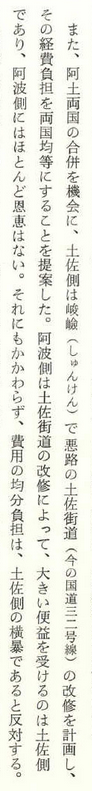 また、阿土両国の合併を機会に、土佐側は峻嶮（しゅんけん）で悪路の土佐街道（今の国道三二号線）の改修を計画し、
その経費負担を両国均等にすることを提案した。阿波側は土佐街道の改修によって、大きい便益を受けるのは土佐側
であり、阿波側にはほとんど恩恵はない。それにもかかわらず、費用の均分負担は、土佐側の横暴であると反対する。